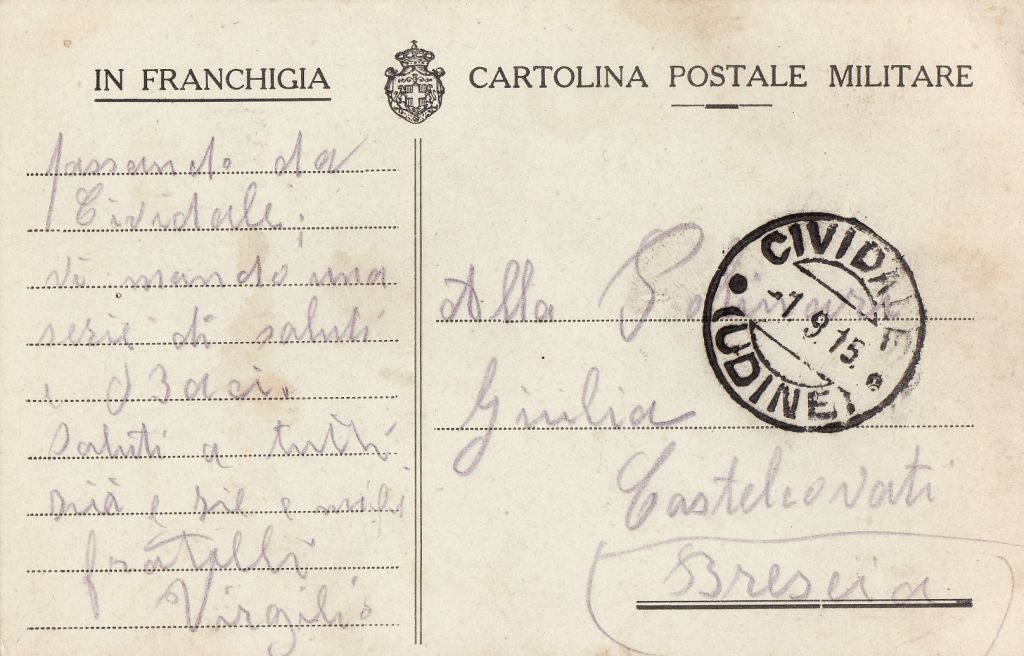 IN FRANCHIGIA
CARTOLINA POSTALE MILITARE
passando da
Cividale,
vi mando una
serie di saluti
e di Baci.
Saluti a tutti
zii e zie e miei
fratelli
Virgilio
Alla
Giulia
Castelcovati
Brescia
CIVIDALE
-1 9 15.
(UDINE)